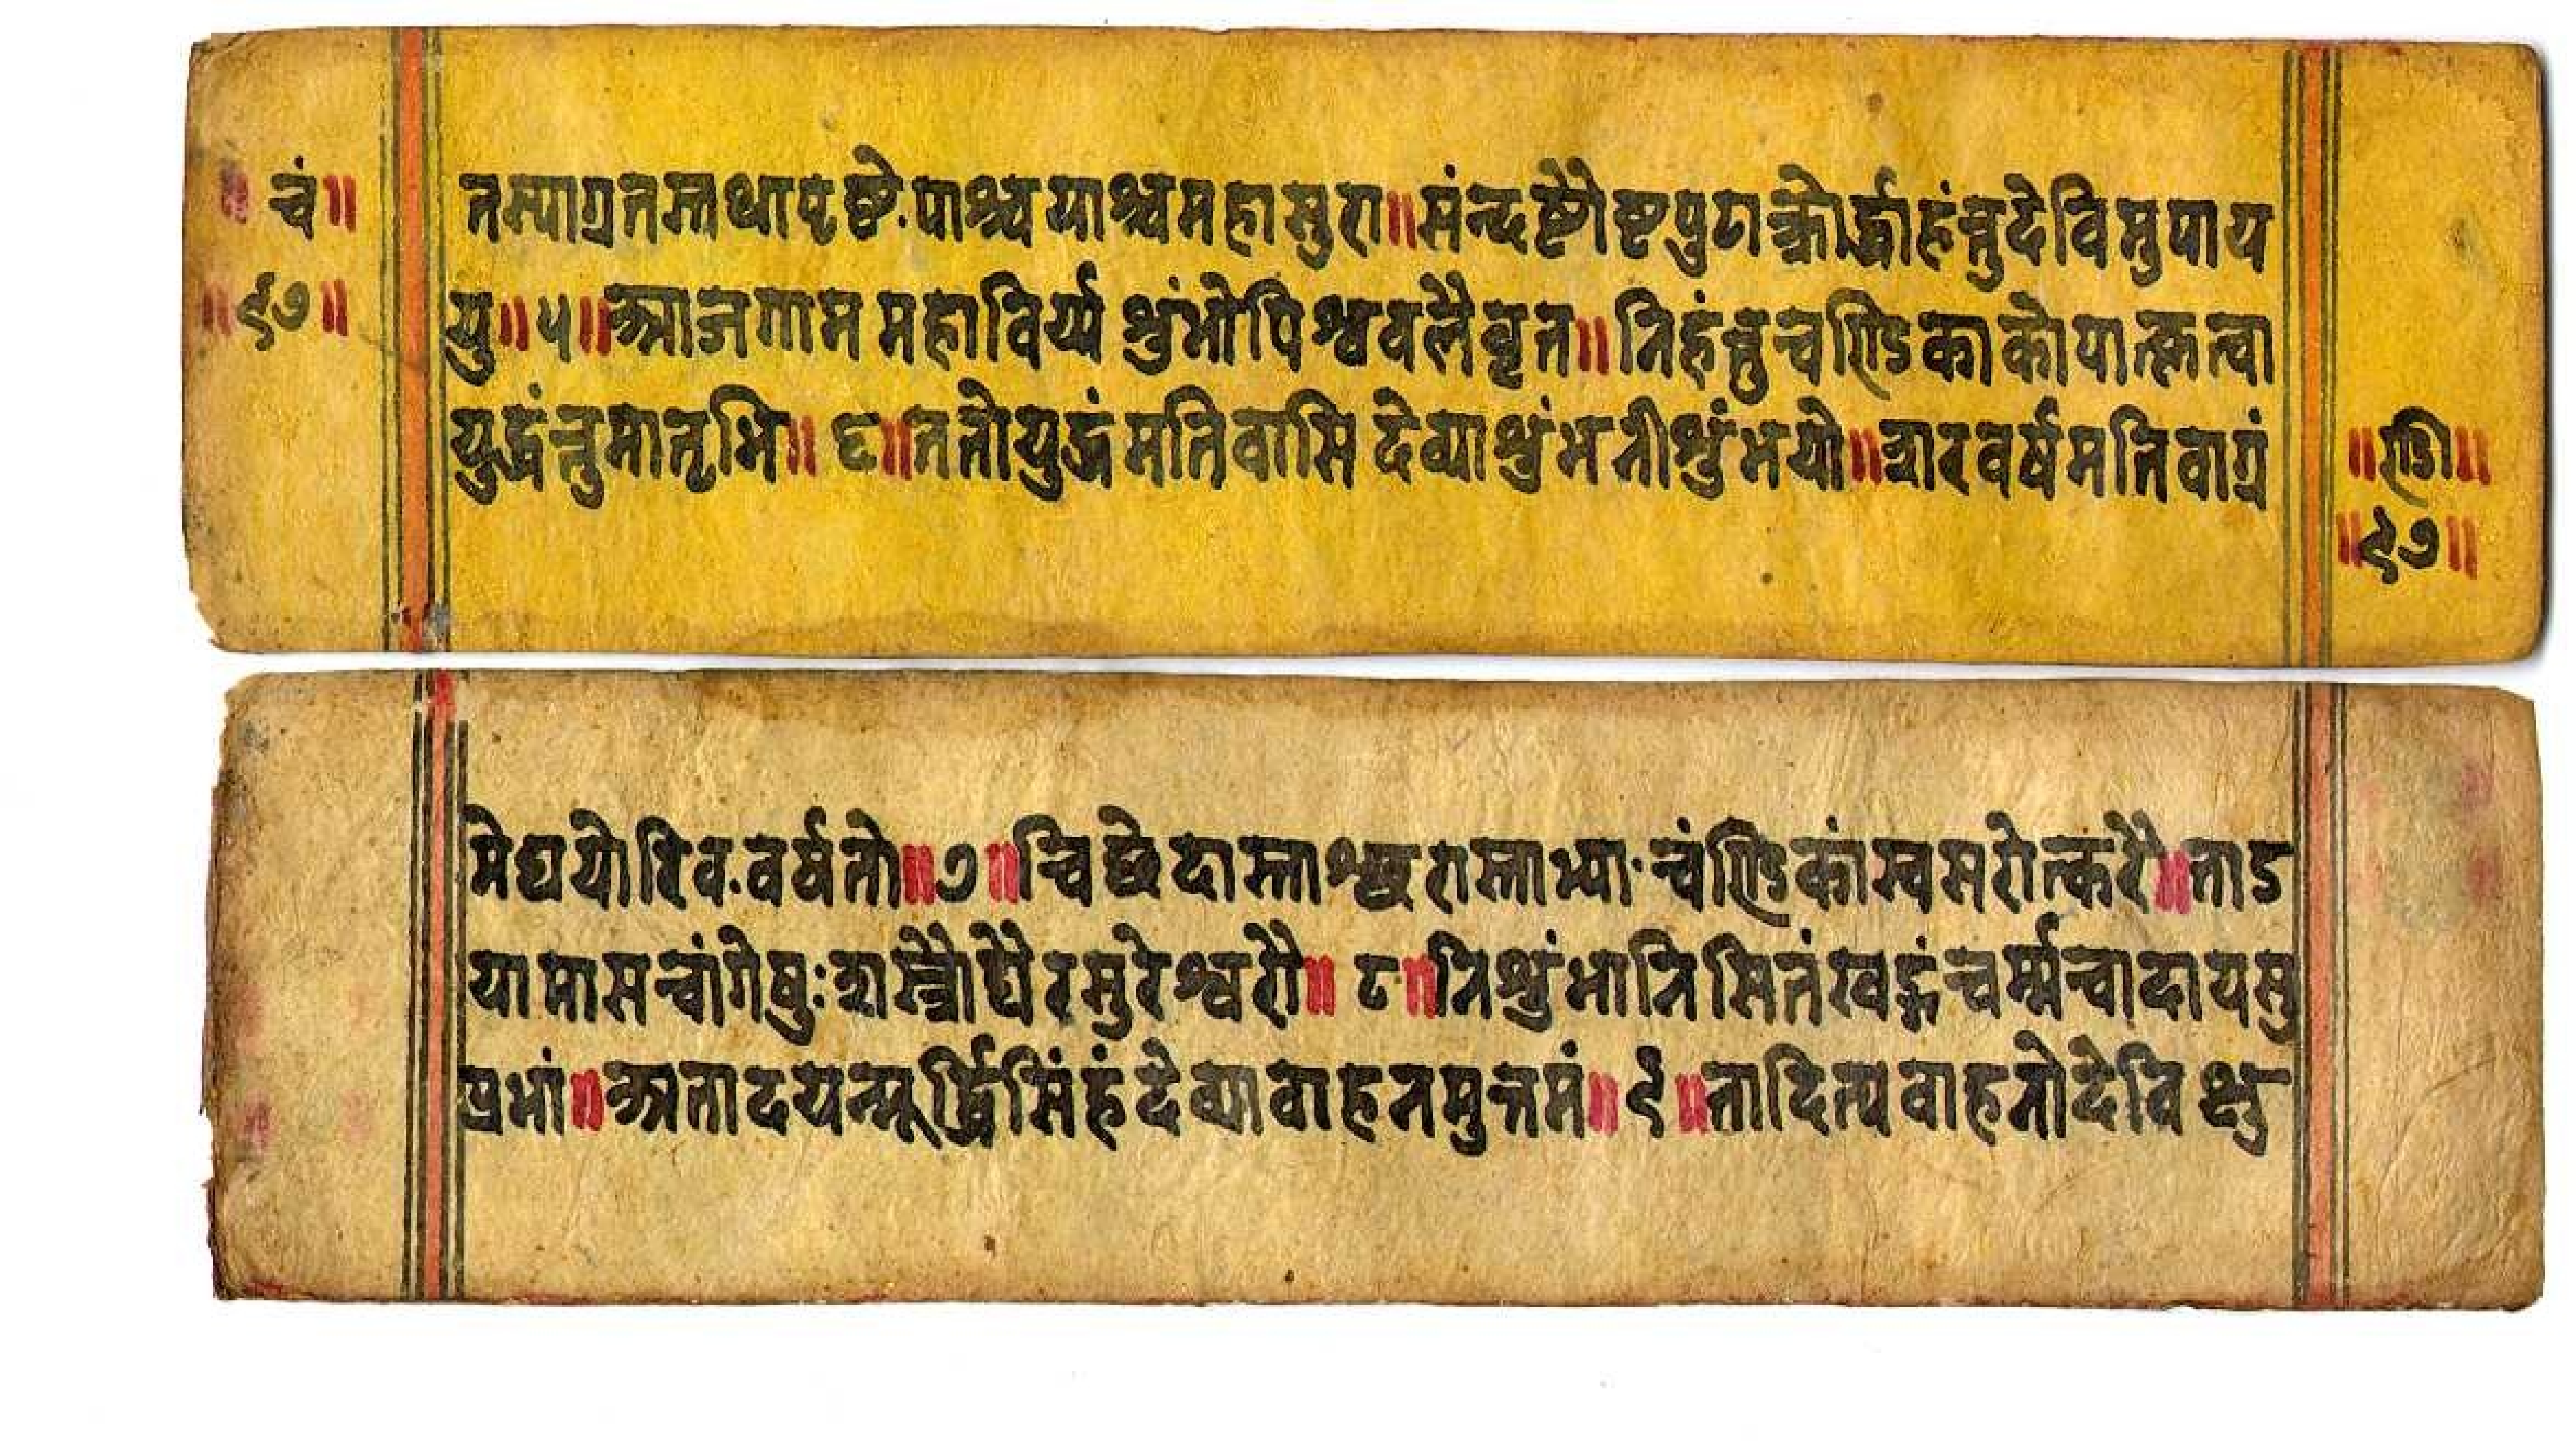 ॥ चं॥
॥९७॥
तस्याग्रतस्तथापृष्ठे.पार्श्वयोश्चमहासुरा॥संन्दष्टौष्टपुटाक्रोर्द्धाहंन्तुदेविमुपाय
यु॥५॥आजगाममहाविर्य्य श्रुंभोपिश्ववलैवृत॥निहंन्तुचण्डिकाकोपात्कृत्वा
युद्धंन्तुमातृभि॥ ६॥ततोयुद्धंमतिवासि देव्याश्रुंभनीश्रुंभयो॥शरवर्षमतिवाग्रं
॥ण्डी॥
॥९७॥
मेघयोरिव.वर्षतो॥७॥चिछेदास्ताश्छरास्ताभ्या.चंण्डिकांस्वसरोत्करै॥ताड
यामासचांगेषुःशस्त्रौघैरसुरेश्वरौ॥ ८॥निश्रुंभानिसितंखड्गंचर्म्मचादायसु
प्रभां॥अतादयन्मूर्द्ध्निसिंहंदेव्यावाहनमुत्तमं॥ ९॥तादित्यवाहनोदेवि क्षु